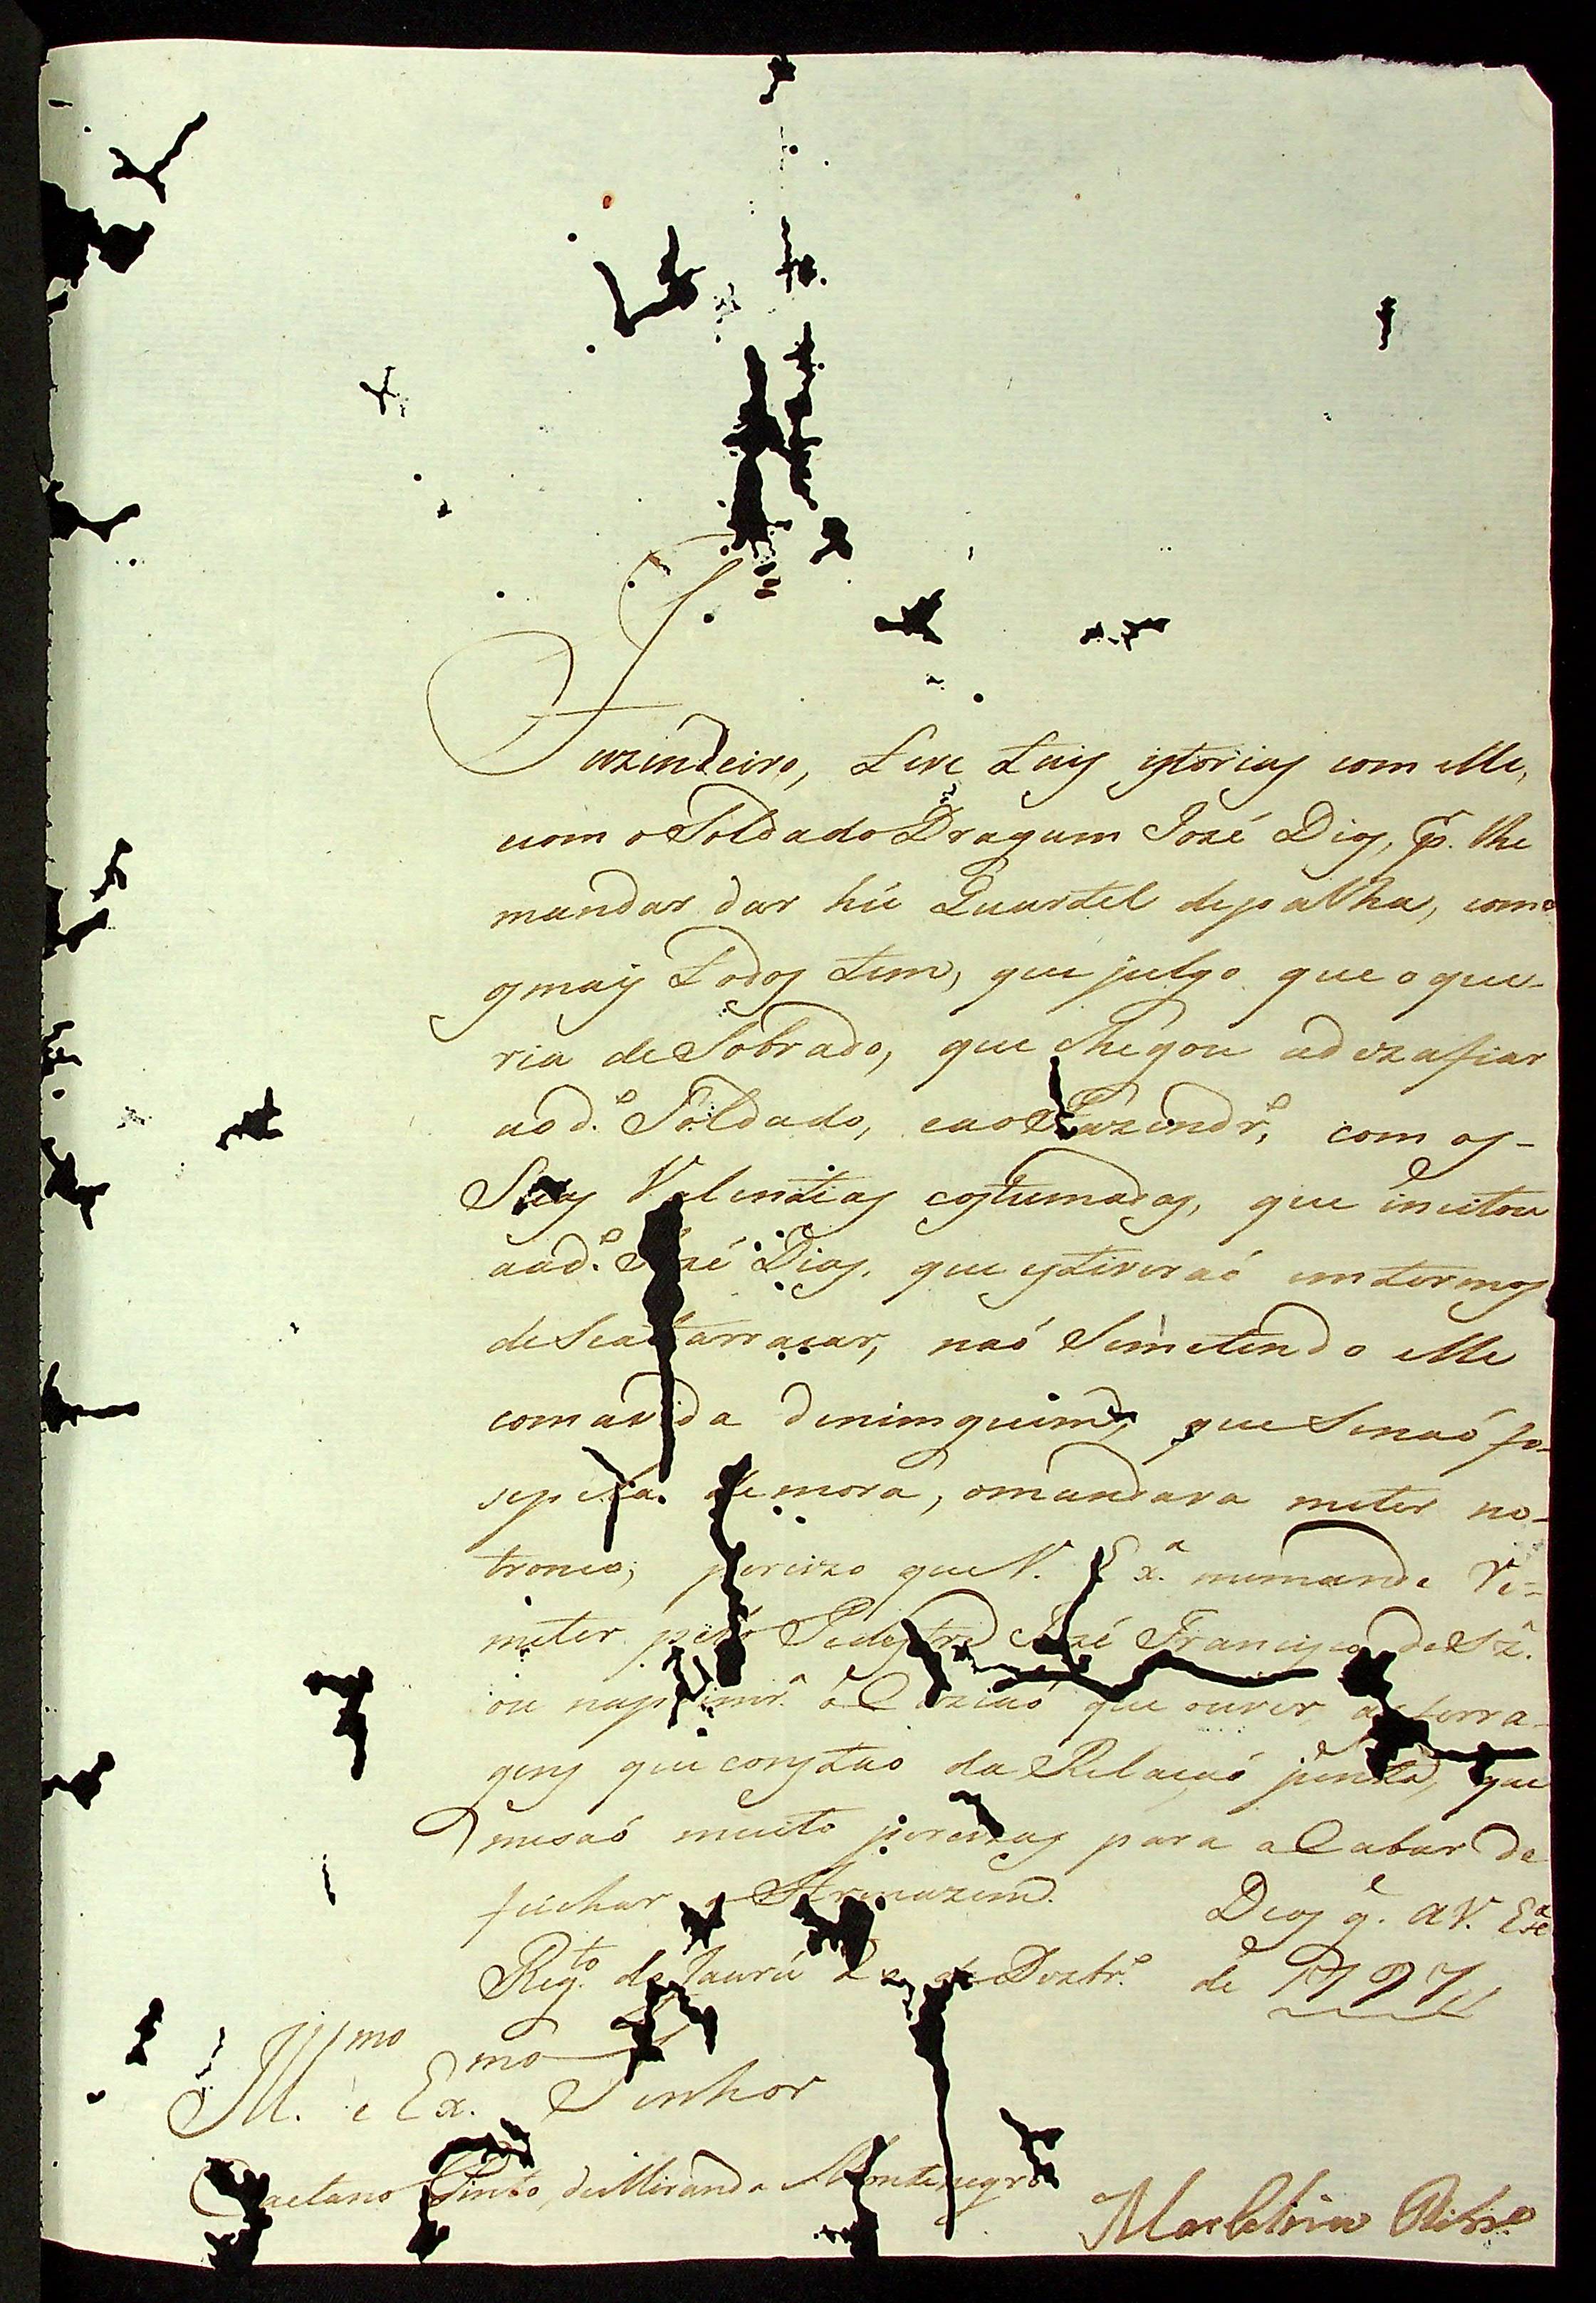 Fazendeiro, teve tais istorias com elle,
com o Soldado Dragam José Dias, p.r lhe
mandar dar hú Quartel de palha, como
os mais todos tem, que julgo que o que-
ria de Sobrado, que chegou adezafiar
ao d.o Soldado, e ao Fazendr.o, com as-
Suas Valentias costumadas, que incitou
aod.o José Dias, que estiveraó em termos
de Seatarracar, naó Semetendo elle
com avida deninguim, que Senaó fo-
se pela demora, omandava meter no-
tronco; percizo que V. Ex.a memande Re-
meter pelo Pedestre José Francisco de Sz.a
ou na prim.ra oCaziaó que ouver, as ferra-
gens que constaó da Relaçaó junta, que
mesaó muito percizas para aCabar de
fechar o Armazem. Deos g.e a V. Ex.a
Reg.to do Jaurú de Dezbr.o de 1797
Ill.mo e Ex.mo Senhor
Caetano Pinto de Miranda Montenegro
Ribr.o